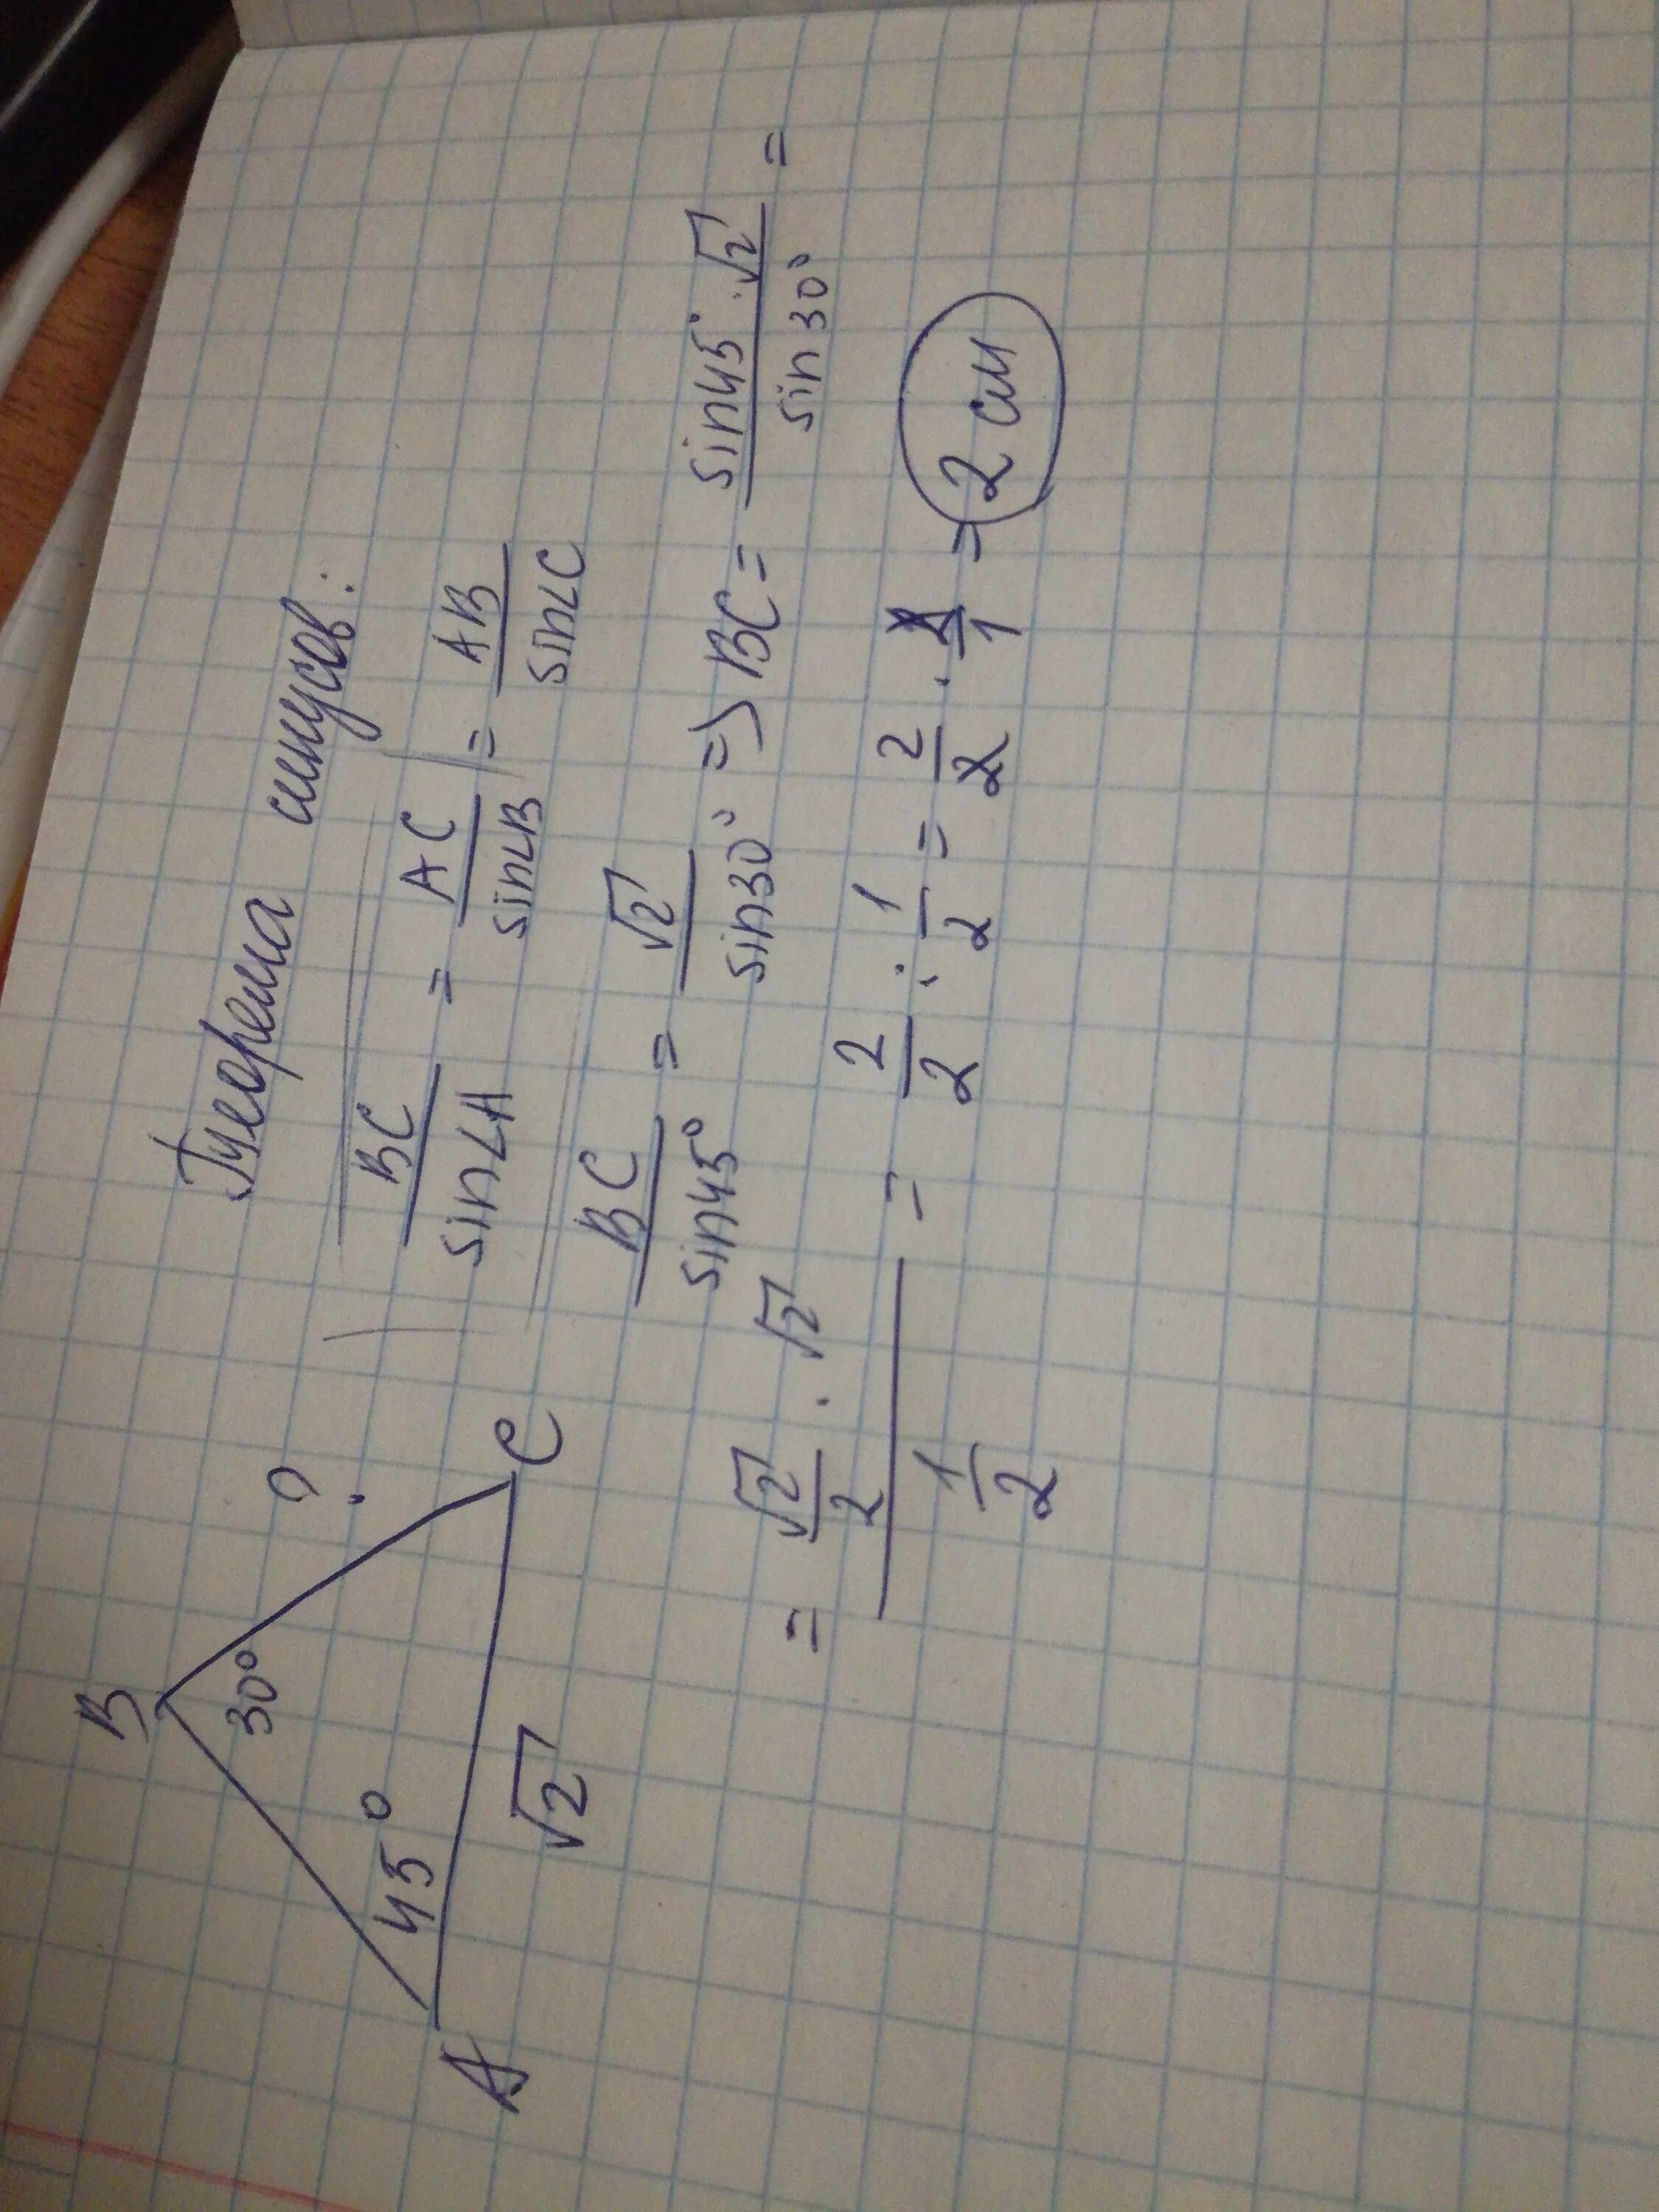 Теорема синусов:
BC/sin∠A = AC/sin∠B = AB/sin∠C
B
30°
?
45°
A
C
√2
BC/sin45° = √2/sin30° => BC = sin45°·√2/sin30° =
= (√2/2 · √2)/(1/2) = 2/2 : 1/2 = 2/2 · 2/1 = 2 см